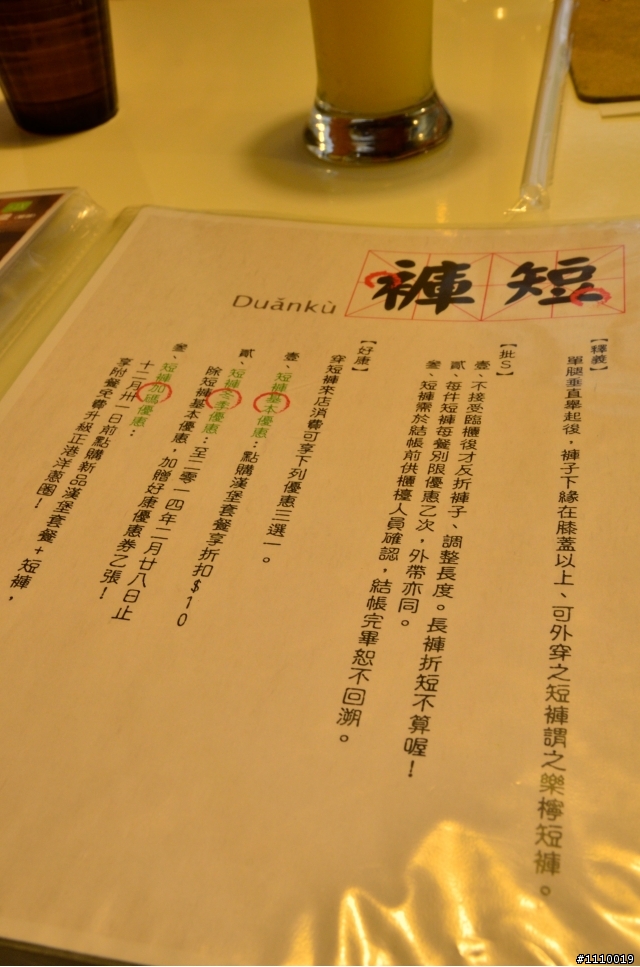 短褲
Duǎnkù
【釋義】
單腿垂直舉起後，褲子下緣在膝蓋以上、可外穿之短褲謂之樂檸短褲。
【批S】
壹、不接受臨櫃後才反折褲子、調整長度。長褲折短不算喔！
貳、每件短褲每餐別限優惠乙次，外帶亦同。
參、短褲需於結帳前供櫃檯人員確認，結帳完畢恕不回溯。
【好康】
穿短褲來店消費可享下列優惠三選一。
壹、短褲基本優惠：點購漢堡套餐享折扣$10
貳、短褲冬季優惠：至二零一四年二月廿八日止
除短褲基本優惠，加贈好康優惠券乙張！
參、短褲加碼優惠：
十二月卅一日前點購新品漢堡套餐+短褲，
享附餐免費升級正港洋蔥圈！
#1110019